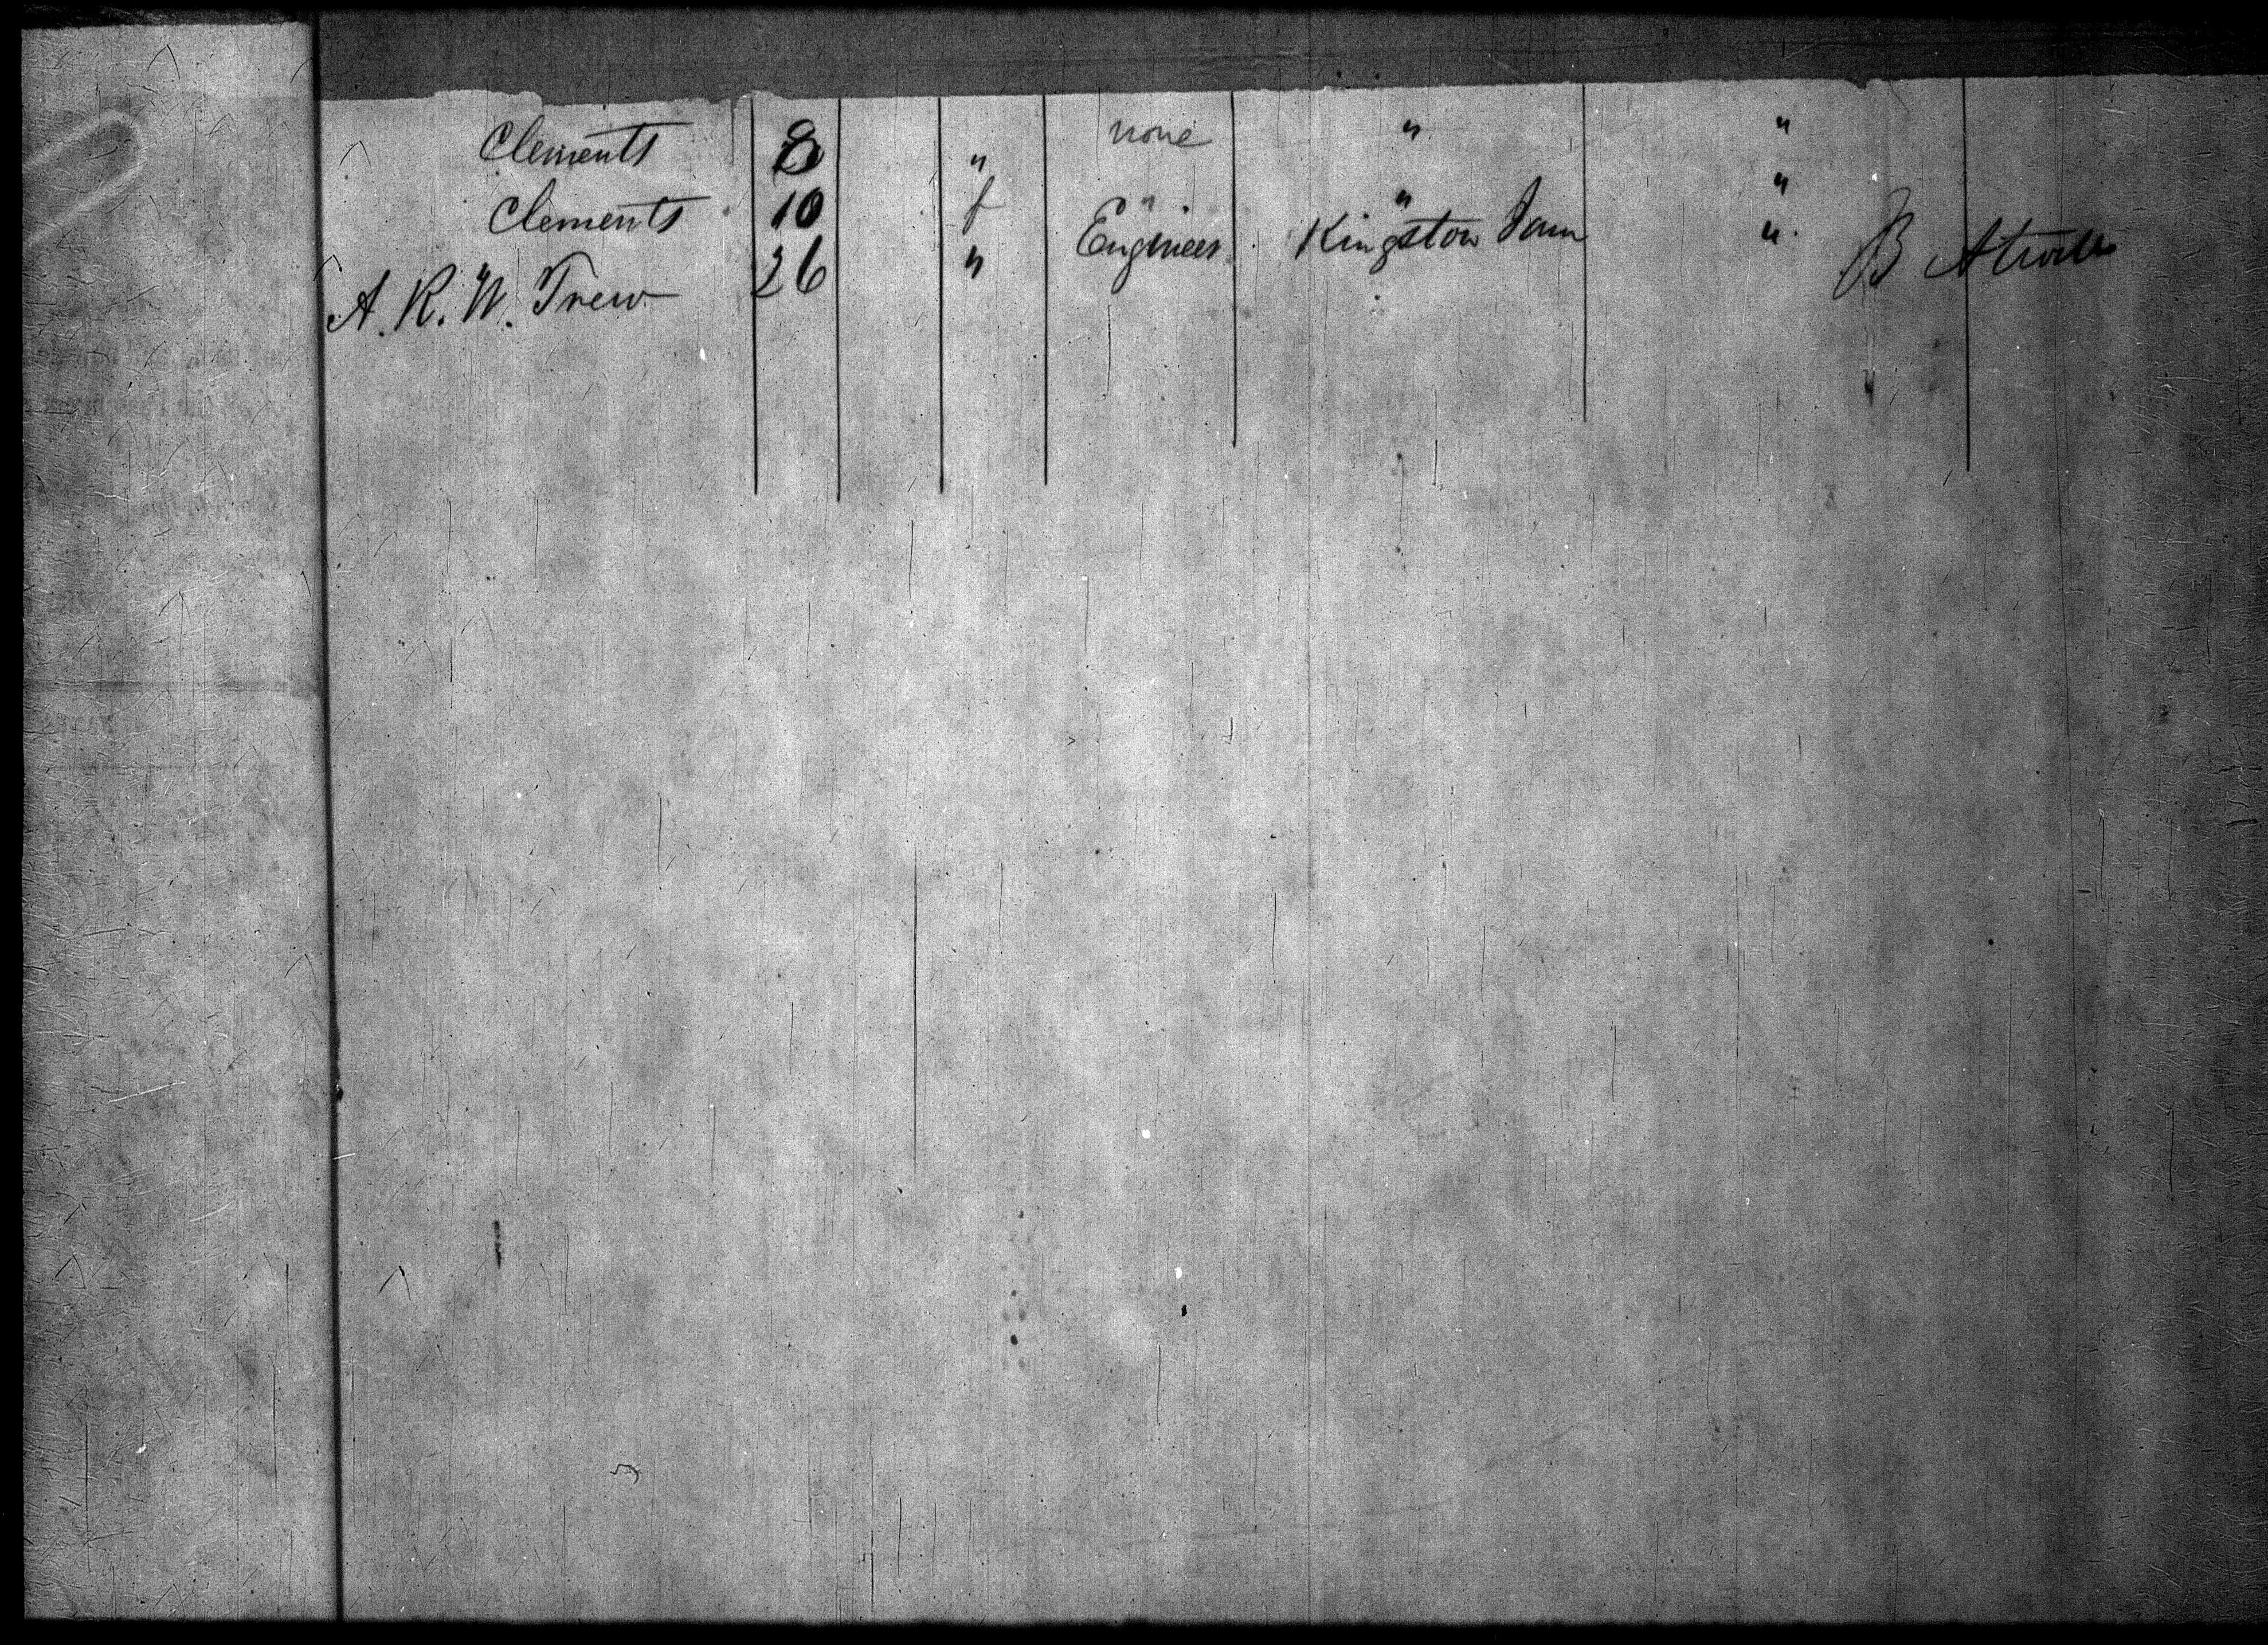 Clements 8 " none " "
Clements 10 f " " "
A. R. W. Trew 26 " Engineer Kingston Jam " B